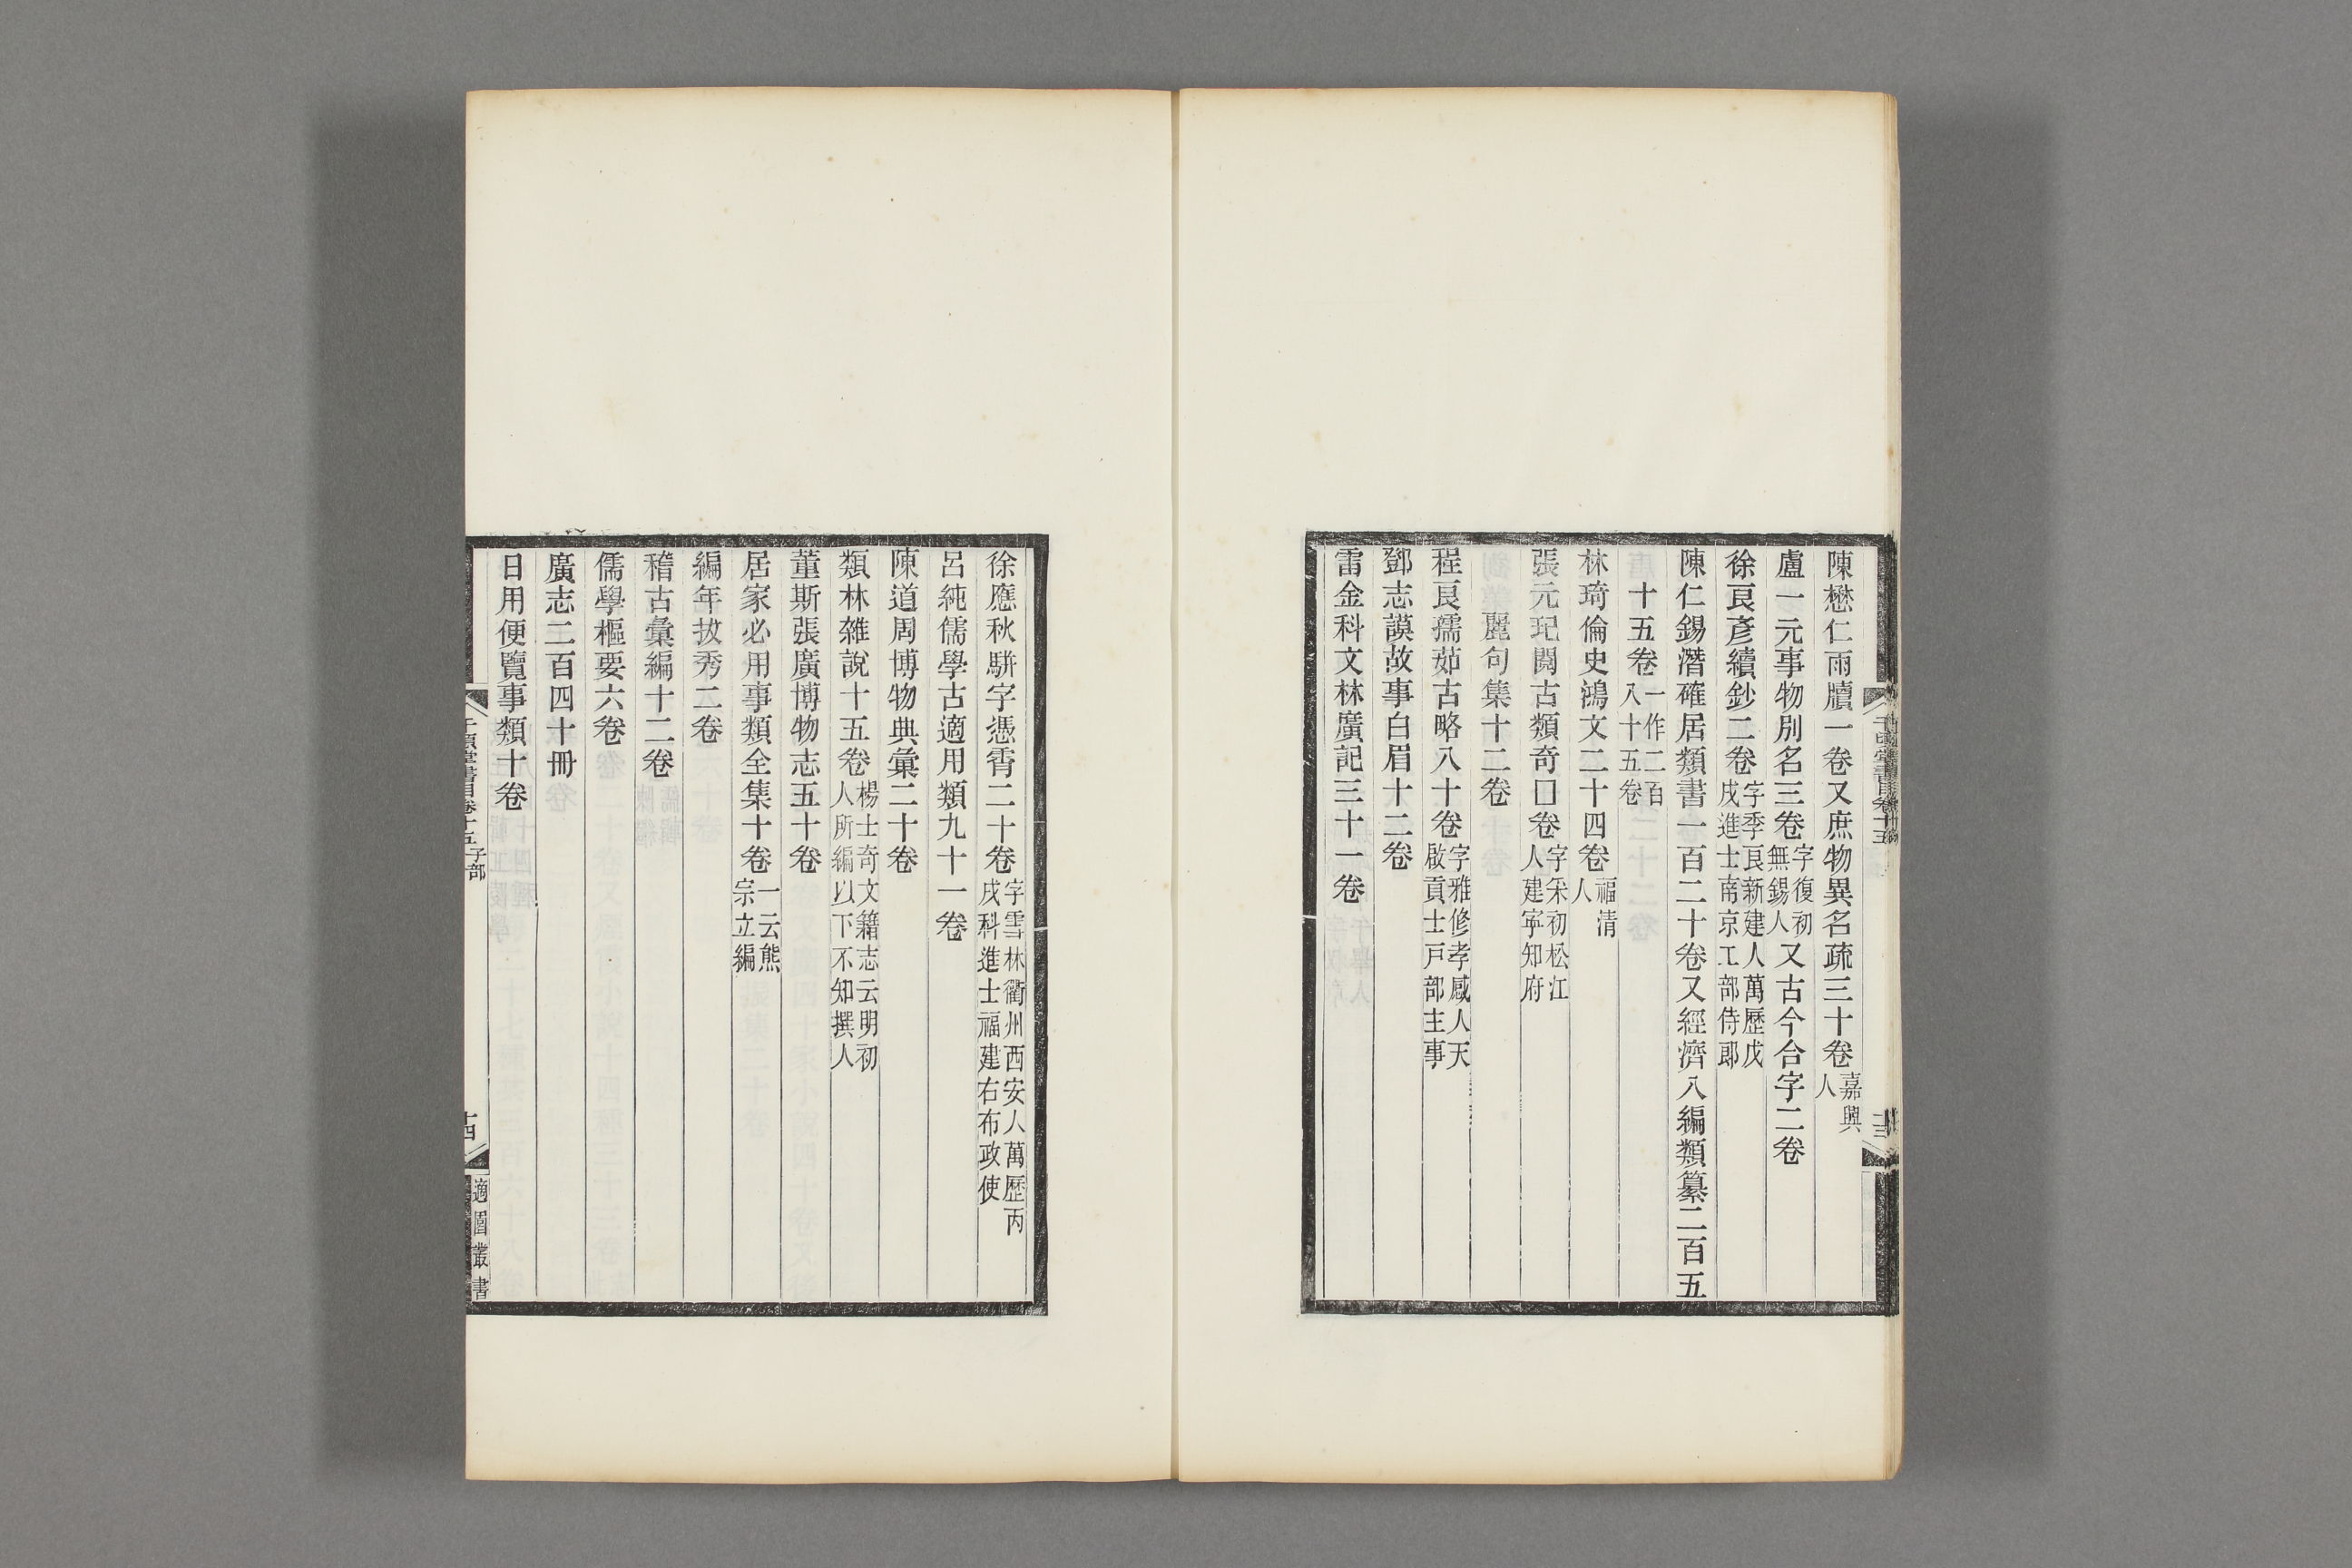 陳懋仁雨牘一卷又庶物異名疏三十卷嘉興人
盧一元事物別名三卷字復初無錫人又古今合字二卷
徐良彥續鈔二卷字季良新建人萬歷戊戌進士南京工部侍郎
陳仁錫潛確居類書一百二十卷又經濟八編類纂二百五
十五卷一作二百八十五卷
林琦倫史鴻文二十四卷福清人
張元玘閱古類奇囗卷字采初松江人建寧知府
麗句集十二卷
程良孺茹古略八十卷字雅修孝感人天啟貢士戸部主事
鄧志謨故事白眉十二卷
雷金科文林廣記三十一卷
徐應秋駢字憑霄二十卷字雲林衢州西安人萬歷丙戌科進士福建右布政使
呂純儒學古適用類九十一卷
陳道周博物典彙二十卷
類林雜說十五卷楊士奇文籍志云明初人所編以下不知撰人
董斯張廣博物志五十卷
居家必用事類全集十卷一云熊宗立編
編年拔秀二卷
稽古彙編十二卷
儒學樞要六卷
廣志二百四十冊
日用便覽事類十卷
千頃堂書目卷十五子部
十四
適園叢書